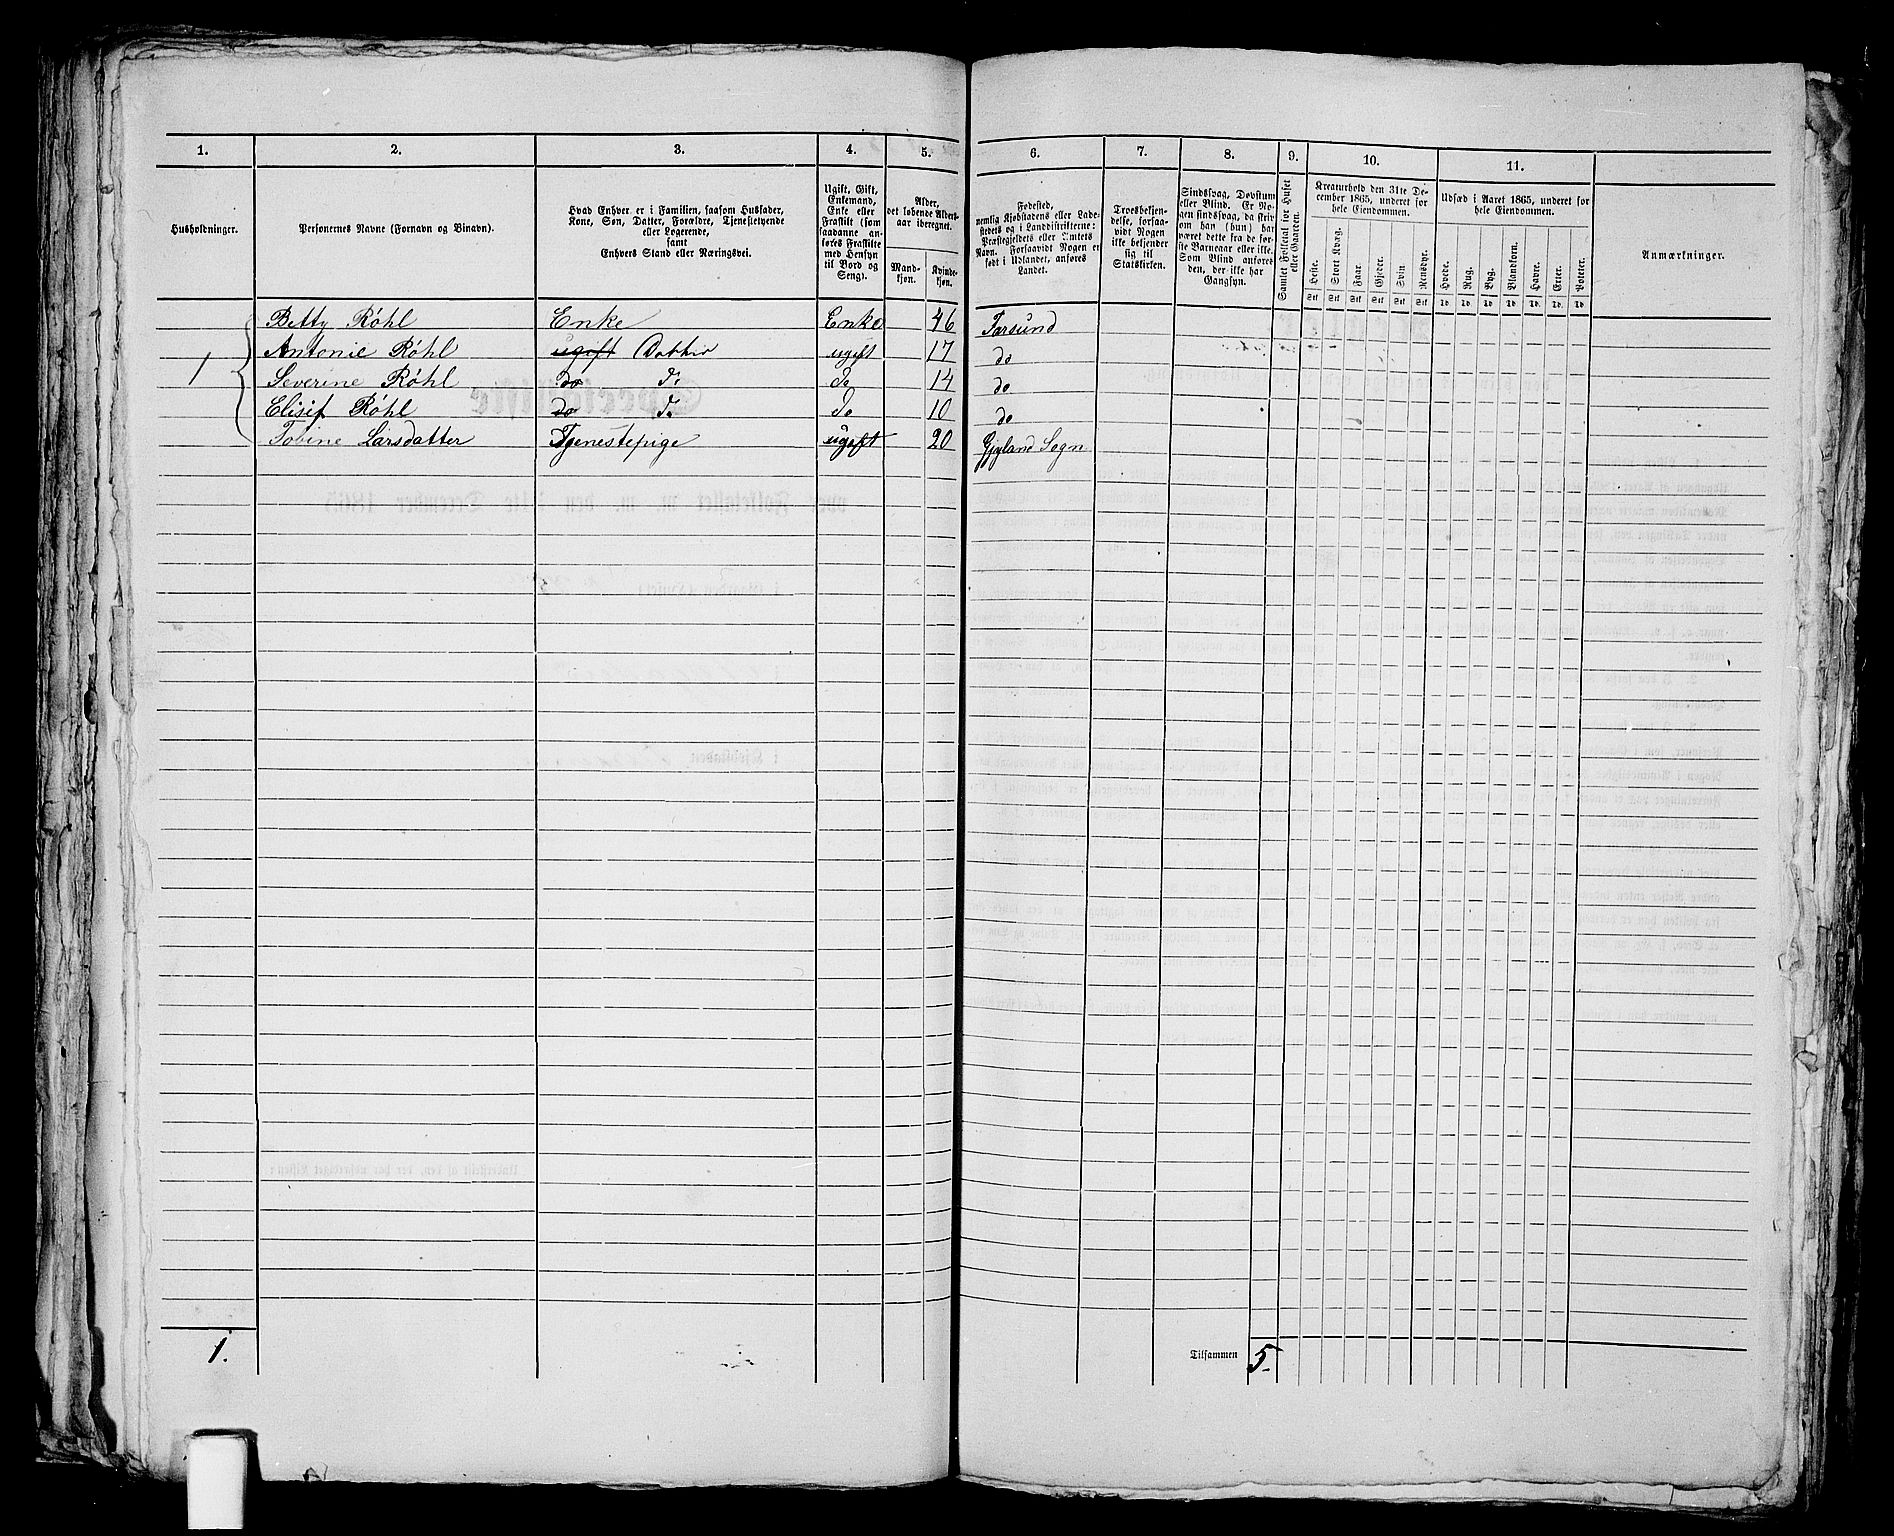 1. 2. 3. 4. 5. 6. 7. 8. 9. 10. 11.
Husholdninger.
Personernes Navne (Fornavn og Binavn).
Hvad Enhver er i Familien, saasom Husfader,
Kone, Søn, Datter, Forældre, Tjenestetyende
eller Logerende,
samt
Enhvers Stand eller Næringsvei.
Ugift, Gift,
Enkemand,
Enke eller
Fraskilt (som
saadanne an-
føres Fraskilte
med Hensyn
til Bord og
Seng).
Alder,
det løbende Alders-
aar iberegnet.
Mand-
kjøn.
Kvinde-
kjøn.
Fødested,
nemlig Kjøbstadens eller Lade-
stedets og i Landdistrikterne:
Præstegjeldets eller Amtets
Navn. Forsaavidt Nogen er
født i Udlandet, anføres
Landet.
Troesbekjen-
delse, forsaa-
vidt Nogen
ikke bekjender
sig til
Statskirken.
Sindssvag, Døvstum
eller Blind. Er No-
gen sindssvag, da skriv
om han (hun) har
været dette fra de før-
ste Barneaar eller ikke.
Som Blind anføres
den, der ikke har
Gangsyn.
Samlet Folketal for Huset
eller Gaarden.
Kreaturhold den 31te De-
cember 1865, underet for
hele Eiendommen.
Heste. Stort Kvæg. Faar. Gjeder. Svin Rensdyr.
Stk Stk Stk Stk Stk Stk
Udsæd i Aaret 1865, underet for
hele Eiendommen.
Hvede. Rug. Byg. Blandkorn. Havre. Erter. Poteter.
Td. Td. Td. Td. Td. Td. Td
Anmærkninger.
1 Betty Röhl Enke Enke 46 Farsund
Antonie Röhl ugift Datter ugift 17 do
Severine Röhl do do do 14 do
Elisif Röhl do do do 10 do
Tobine Larsdatter Tjenestepige ugift 20 Gyland Sogn
1. Tilsammen 5.